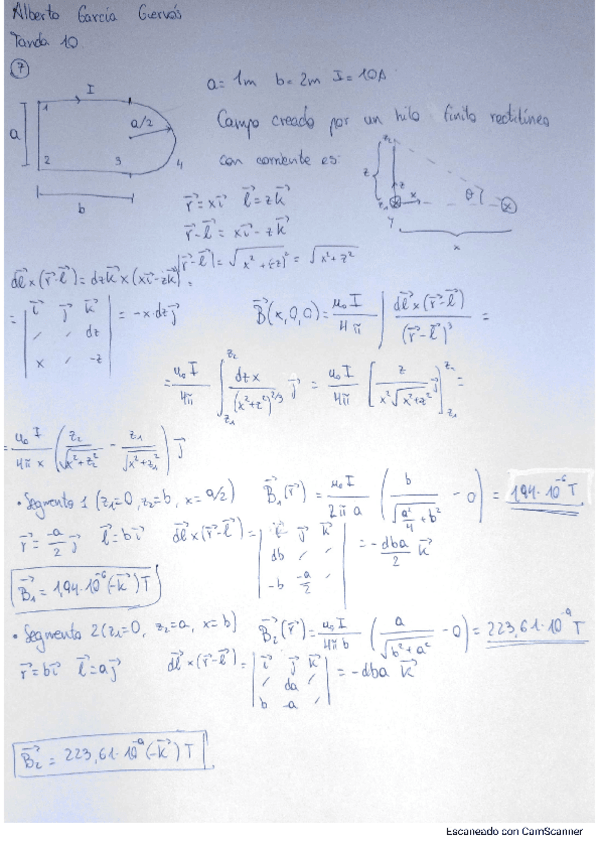 Alberto García Gervás
Tanda 10
⑦
a = 1m b = 2m I = 10A
I
1
a
a/2
2
3
4
b
Campo creado por un hilo finito rectilíneo
con corriente es:
z₂
z
z₁
x
θ
y
x
r⃗ = x i⃗ l⃗ = z k⃗
r⃗ - l⃗ = x i⃗ - z k⃗
|r⃗ - l⃗| = √(x² + (-z)²) = √(x² + z²)
dl⃗ × (r⃗ - l⃗) = dz k⃗ × (x i⃗ - z k⃗)
= | i⃗ j⃗ k⃗ ; ⸍ ⸍ dz ; x ⸍ -z | = -x·dz j⃗
B⃗(x,0,0) = μ₀ I / 4π ∫ dl⃗ × (r⃗ - l⃗) / (r⃗ - l⃗)³ =
= μ₀ I / 4π ∫_{z₁}^{z₂} dz x / (x² + z²)^{2/3} j⃗ = μ₀ I / 4π [ z / x²√(x² + z²) j⃗ ]_{z₁}^{z₁} =
= μ₀ I / 4π x ( z₂ / √(x² + z₂²) - z₁ / √(x² + z₁²) ) j⃗
• Segmento 1 (z₁=0, z₂=b, x=a/2) B⃗₁(r⃗) = μ₀ I / 2π a ( b / √(a²/4 + b²) - 0 ) = 1,94·10⁻⁶ T
r⃗ = -a/2 j⃗ l⃗ = b i⃗ dl⃗ × (r⃗ - l⃗) = | i⃗ j⃗ k⃗ ; db ⸍ ⸍ ; -b -a/2 ⸍ | = -dba/2 k⃗
B⃗₁ = 1,94·10⁻⁶ (-k⃗) T
• Segmento 2 (z₁=0, z₂=a, x=b) B⃗₂(r⃗) = μ₀ I / 4π b ( a / √(b² + a²) - 0 ) = 223,61·10⁻⁹ T
r⃗ = b i⃗ l⃗ = a j⃗ dl⃗ × (r⃗ - l⃗) = | i⃗ j⃗ k⃗ ; ⸍ da ⸍ ; b -a ⸍ | = -dba k⃗
B⃗₂ = 223,61·10⁻⁹ (-k⃗) T
Escaneado con CamScanner